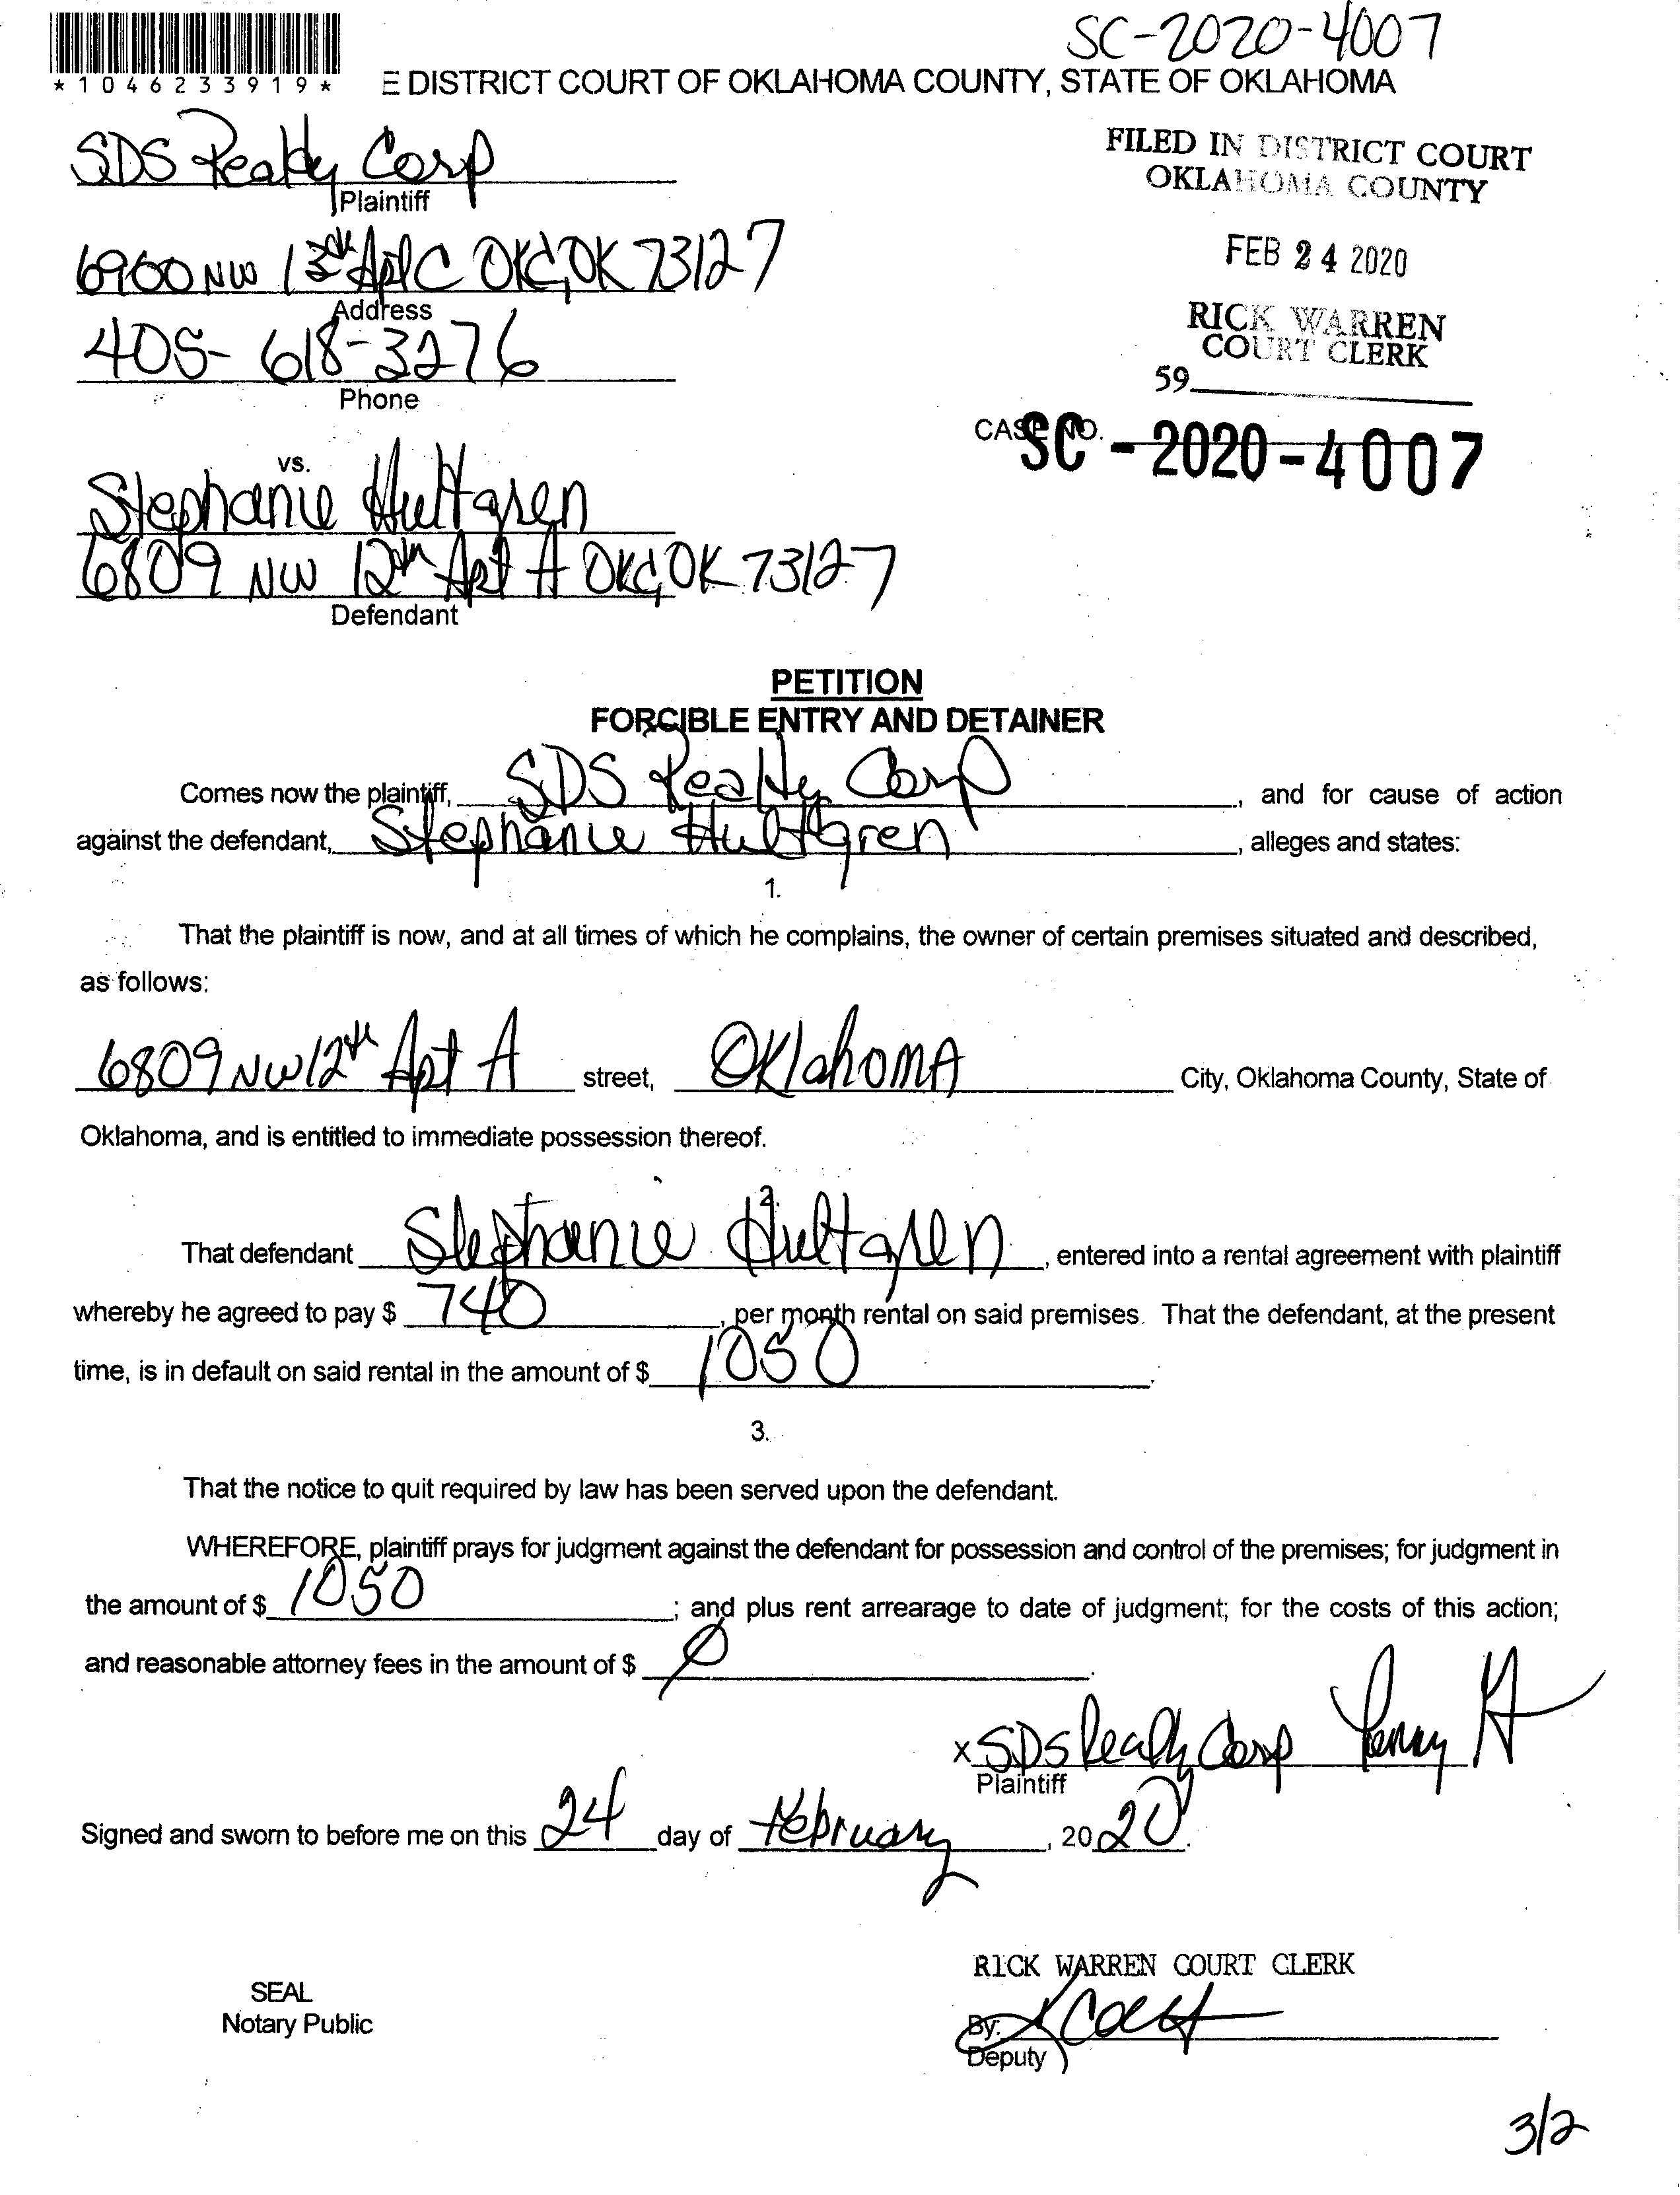 SC-2020-4007
*1046233919*
E DISTRICT COURT OF OKLAHOMA COUNTY, STATE OF OKLAHOMA
SDS Realty Corp
Plaintiff
FILED IN DISTRICT COURT
OKLAHOMA COUNTY
6900 NW 13th Apt C OKC, OK 73127
Address
FEB 24 2020
405-618-3276
Phone
RICK WARREN
COURT CLERK
59
CASE NO. SC-2020-4007
vs.
Stephanie Hultgren
6809 NW 12th Apt A OKC, OK 73127
Defendant
PETITION
FORCIBLE ENTRY AND DETAINER
Comes now the plaintiff, SDS Realty Corp, and for cause of action
against the defendant, Stephanie Hultgren, alleges and states:
1.
That the plaintiff is now, and at all times of which he complains, the owner of certain premises situated and described,
as follows:
6809 NW 12th Apt A street, Oklahoma City, Oklahoma County, State of
Oklahoma, and is entitled to immediate possession thereof.
2.
That defendant Stephanie Hultgren, entered into a rental agreement with plaintiff
whereby he agreed to pay $ 740, per month rental on said premises. That the defendant, at the present
time, is in default on said rental in the amount of $ 1050.
3.
That the notice to quit required by law has been served upon the defendant.
WHEREFORE, plaintiff prays for judgment against the defendant for possession and control of the premises; for judgment in
the amount of $ 1050; and plus rent arrearage to date of judgment; for the costs of this action;
and reasonable attorney fees in the amount of $ Ø.
x SDS Realty Corp Penny H
Plaintiff
Signed and sworn to before me on this 24 day of February, 2020.
RICK WARREN COURT CLERK
SEAL
Notary Public
By:
Deputy
3/2